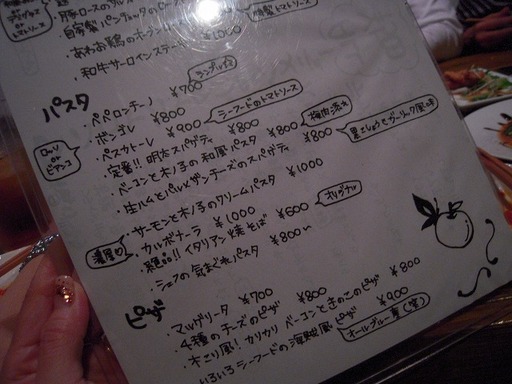 デミグラス
or
トマトソース
自家製 パンチェッタの
燻製トマトソース
あわお鶏の
¥1000
和牛サーロインステーキ
パスタ
ペペロンチーノ ¥700
シンプル
ボンゴレ ¥800
ロッソ
or
ビアンコ
ペスカトーレ ¥900
シーフードのトマトソース
定番!! 明太スパゲティ ¥800
ベーコンと木ノ子の和風パスタ ¥800
梅肉添え
生ハムとパルメザンチーズのスパゲティ ¥800
黒こしょうとガーリック風味
サーモンと木ノ子のクリームパスタ ¥1000
カルボナーラ ¥1000
濃厚
絶品!! イタリアン焼そば ¥600
オリジナル
シェフの気まぐれパスタ ¥800〜
ピザ
マルゲリータ ¥700
4種のチーズのピザ ¥800
木こり風! カリカリベーコンときのこのピザ ¥800
いろいろシーフードの海賊風ピザ ¥900
オールブルー